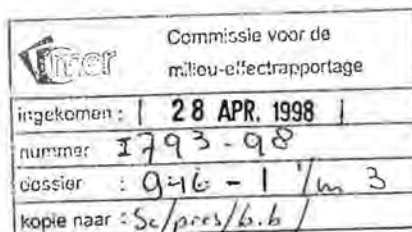 mer
Commissie voor de
milieu-effectrapportage
ingekomen : 28 APR. 1998
nummer I793-98
dossier : 946 - 1 t/m 3
kopie naar : Sc/pres/b.b/